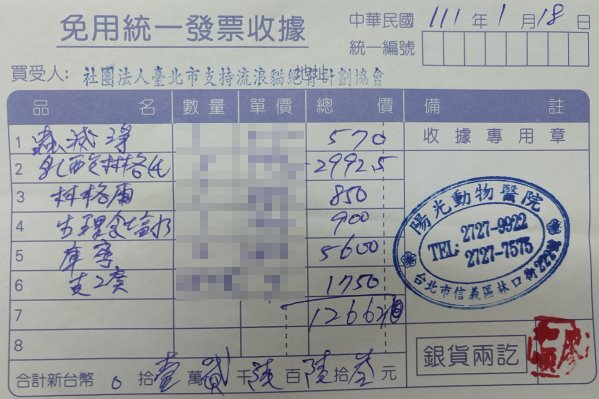 免用統一發票收據
中華民國 111 年 1 月 18 日
統一編號
買受人: 社團法人臺北市支持流浪貓絕育計劃協會
地址
品 名 數量 單價 總價 備 註
1 蟲減淨 570 收據專用章
2 2992.5
3 林格爾 850
4 生理食塩水 900
5 庫寧 5600
6 1750
7
8
陽光動物醫院
TEL: 2727-9922
2727-7575
台北市信義區林口街
銀貨兩訖
合計新台幣 0 拾壹萬貳千陸百陸拾叁元